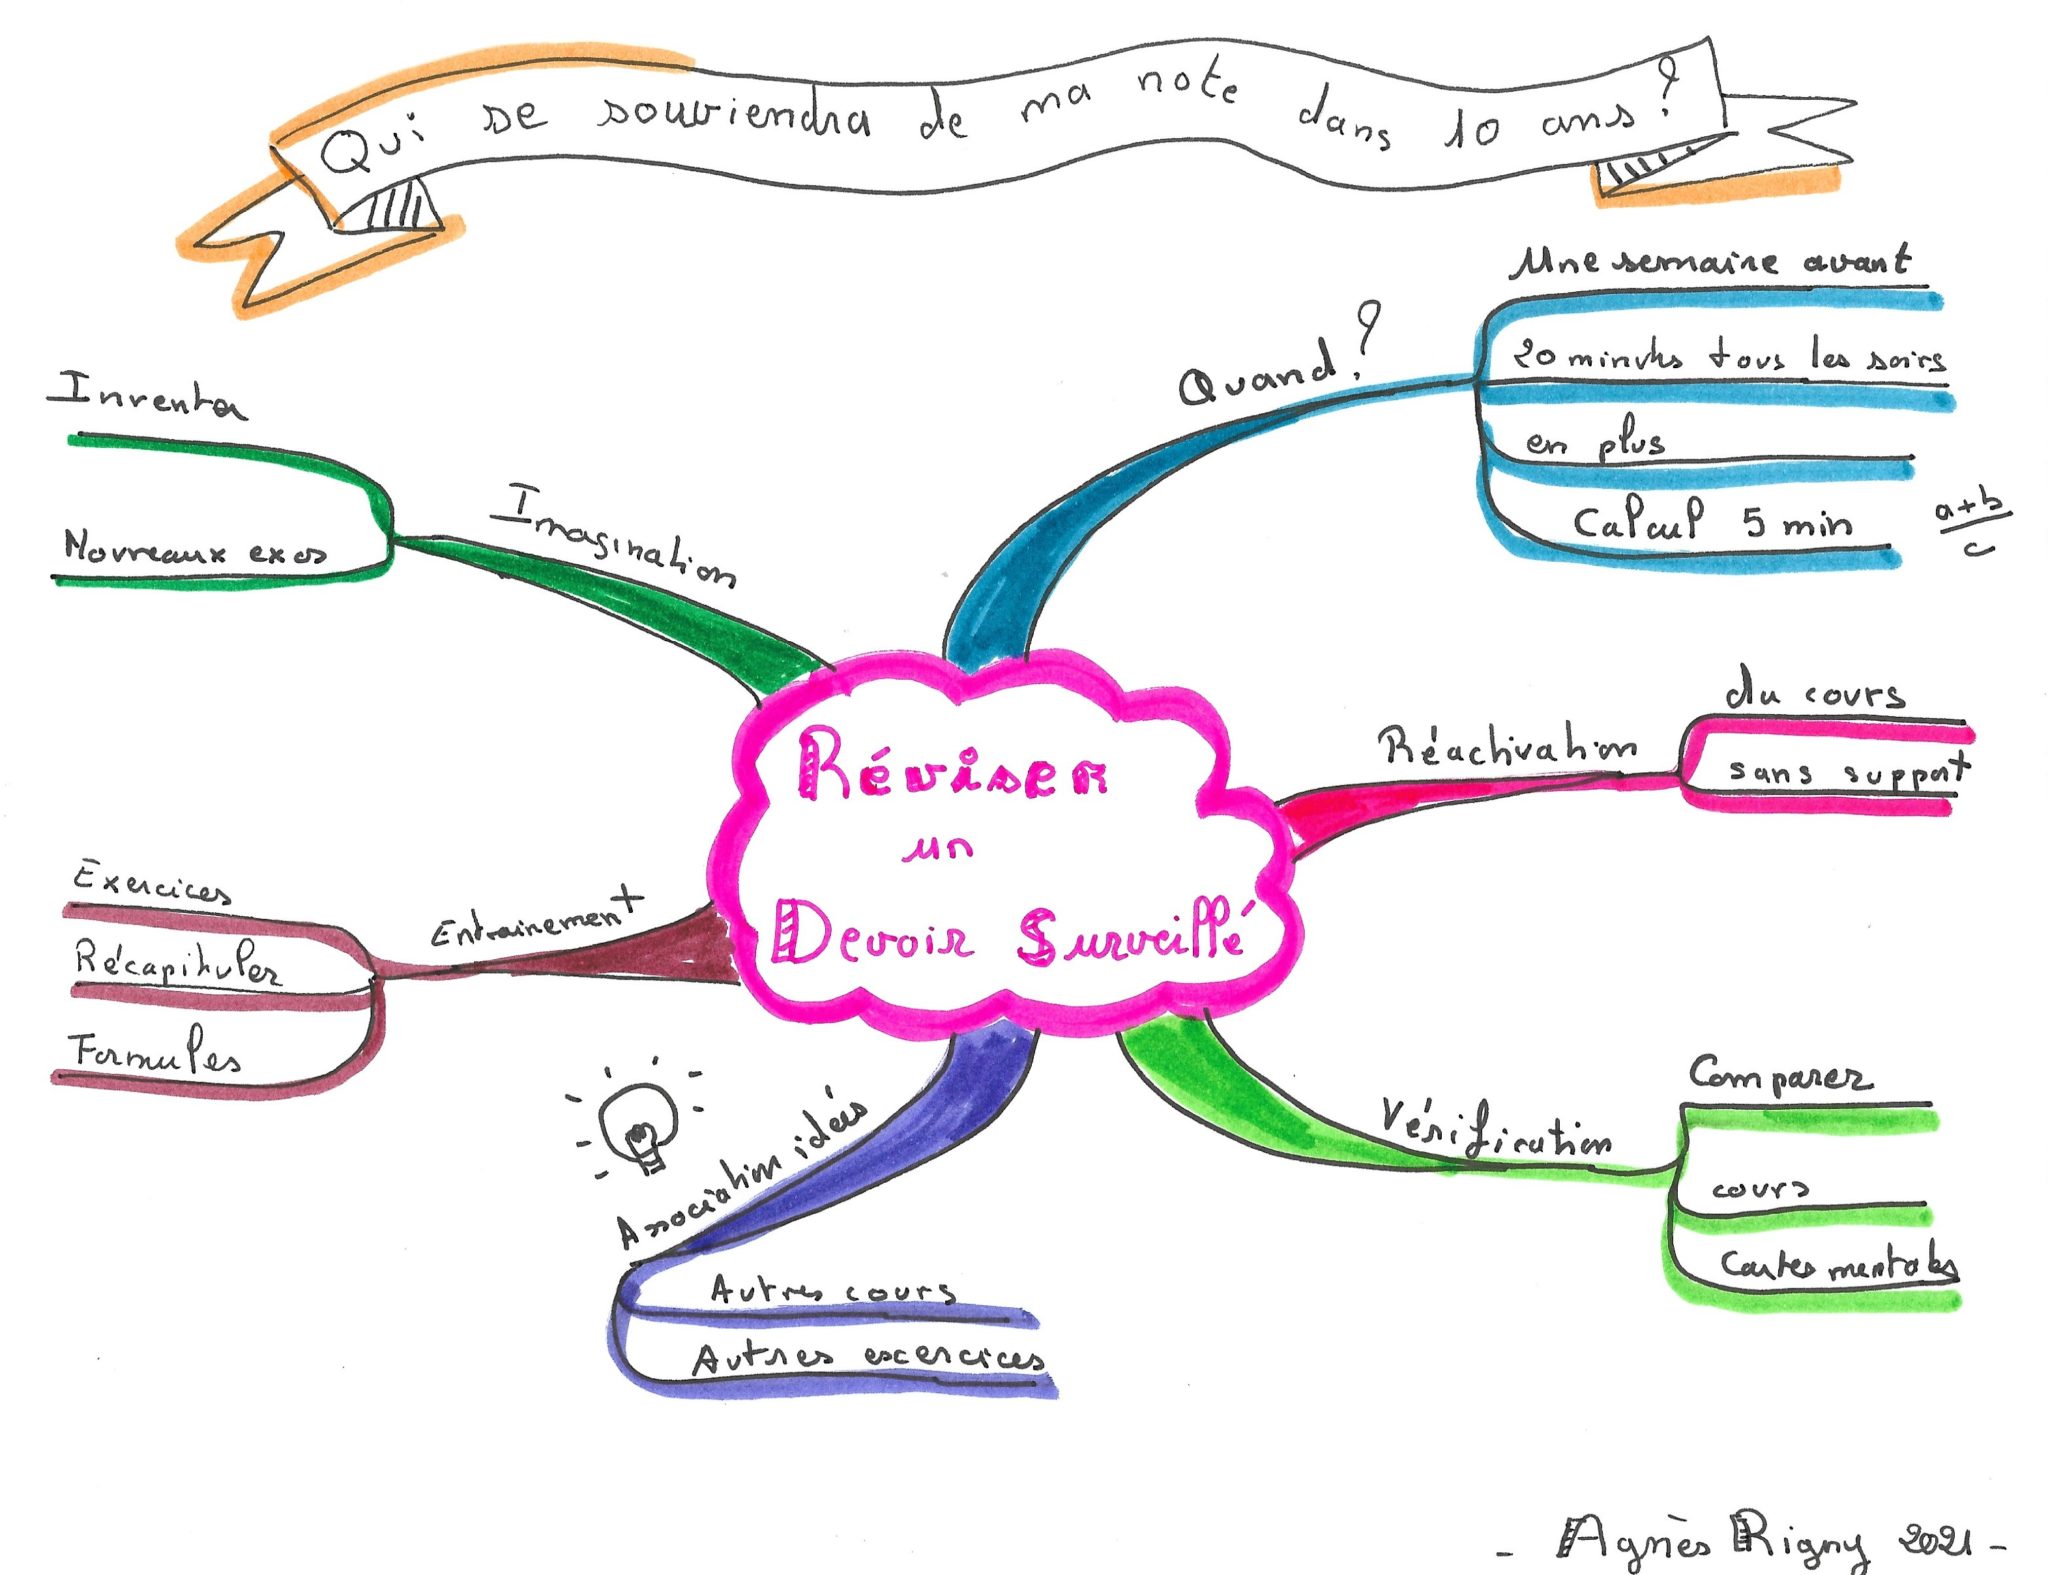 Qui se souviendra de ma note dans 10 ans ?
Quand ?
Une semaine avant
20 minutes tous les soirs
en plus
Calcul 5 min
a+b
c
Réactivation
du cours
sans support
Vérification
Comparer
cours
Cartes mentales
Association idées
Autres cours
Autres exercices
Entrainement
Exercices
Récapituler
Formules
Imagination
Inventer
Nouveaux exos
Réviser
un
Devoir Surveillé
- Agnès Rigny 2021 -